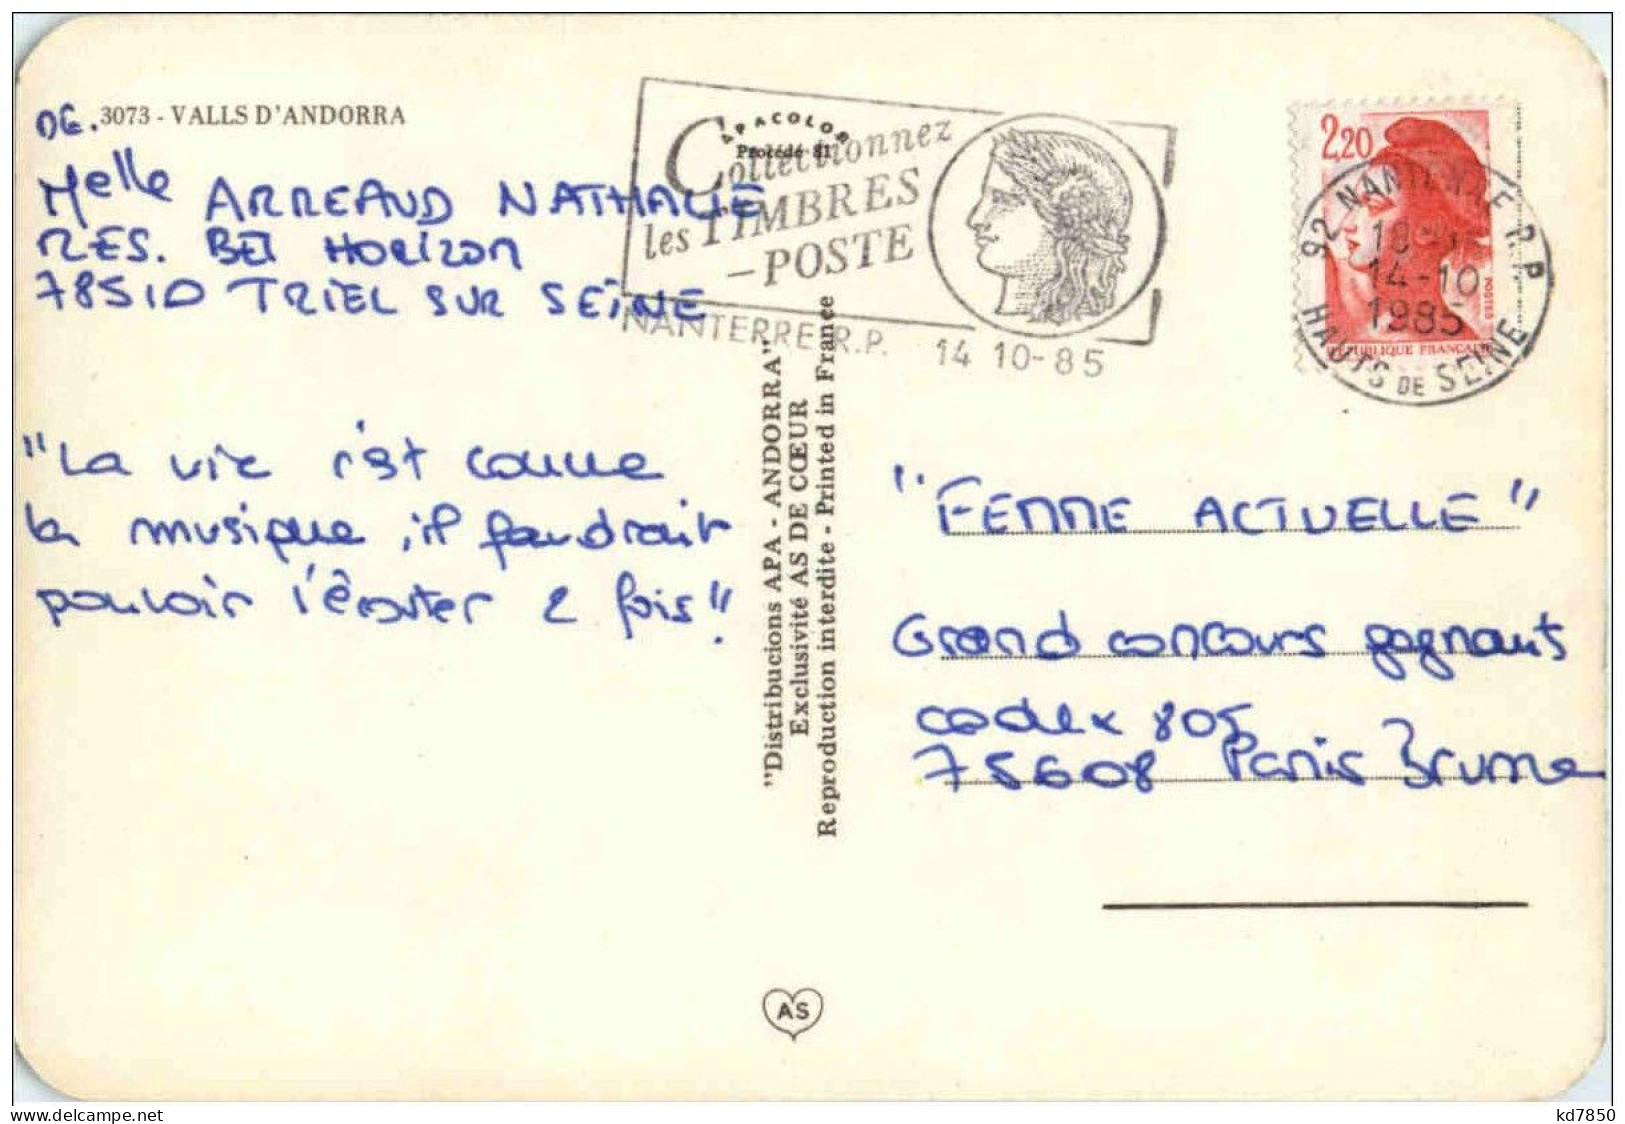 DE.
3073 - VALLS D'ANDORRA
Melle ARREAUD NATHALIE
RES. BEL HORIZON
78510 TRIEL SUR SEINE
APACOLOR
Procédé 81
Collectionnez
les TIMBRES
-POSTE
NANTERRE R.P. 14 10-85
2,20
POSTES
REPUBLIQUE FRANÇAISE
92 NANTERRE R.P
14-10
1985
HAUTS DE SEINE
"La vie c'est comme
la musique, il faudrait
pouvoir l'écouter 2 fois".
"Distribucions APA - ANDORRA"
Exclusivité AS DE CŒUR
Reproduction interdite - Printed in France
"FEMME ACTUELLE"
Grand concours gagnants
codex 805
75608 Paris Brune
AS
delcampe.net
kd7850